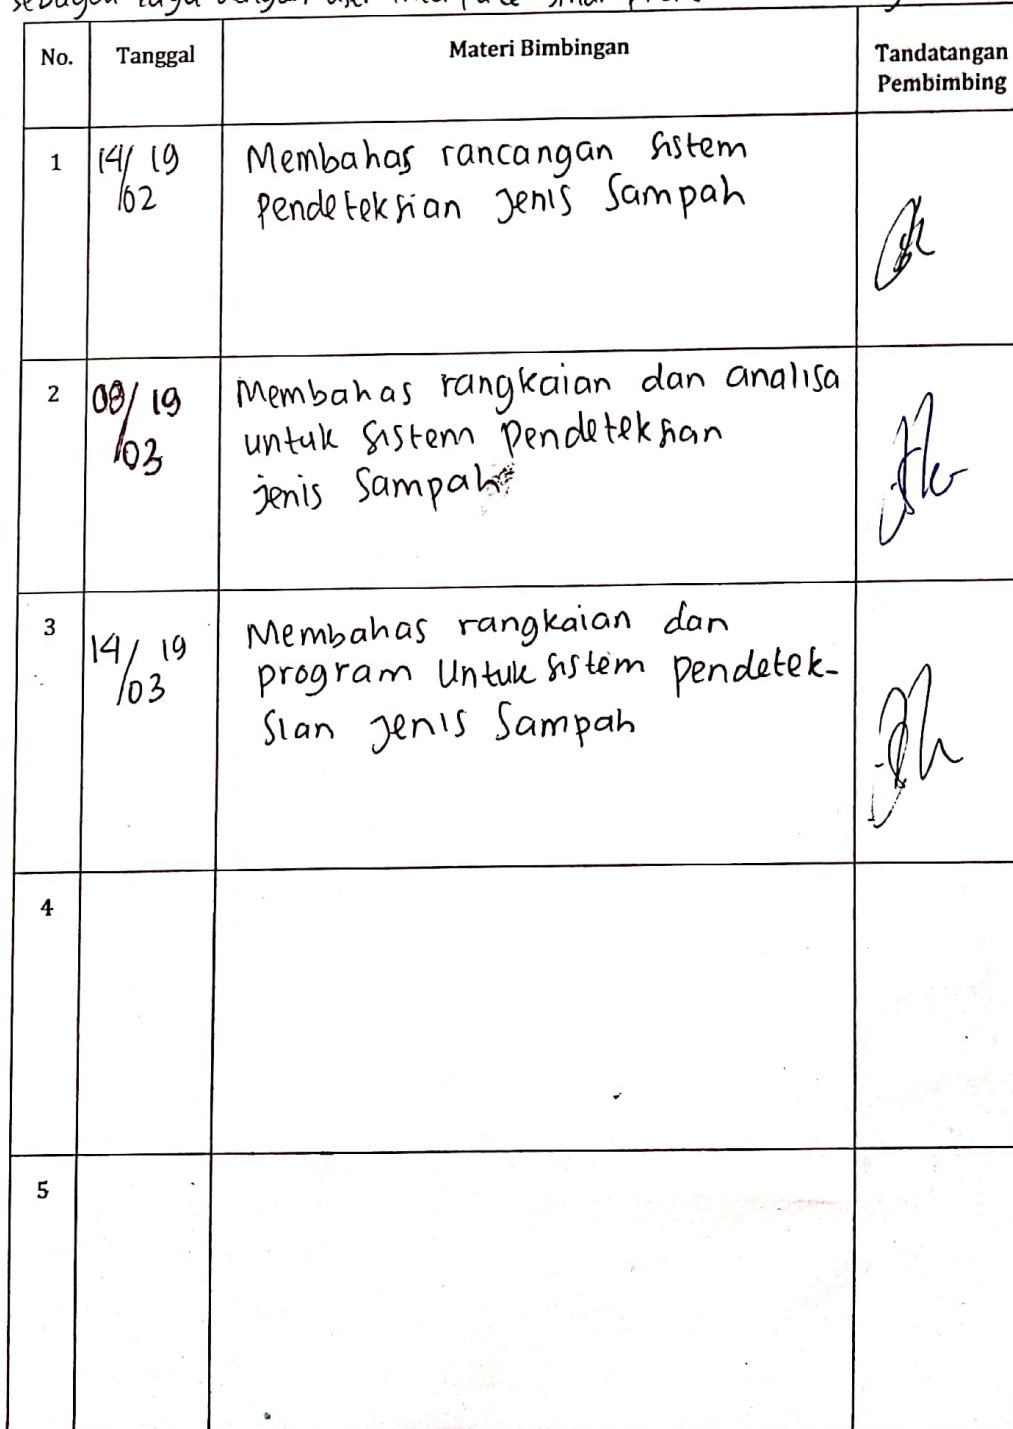 dengan user interface
No. Tanggal Materi Bimbingan Tandatangan
Pembimbing
1 14/02 19 Membahas rancangan sistem
pendeteksian jenis sampah
2 08/03 19 Membahas rangkaian dan analisa
untuk sistem pendeteksian
jenis sampah
3 14/03 19 Membahas rangkaian dan
program untuk sistem pendetek-
sian jenis sampah
4
5